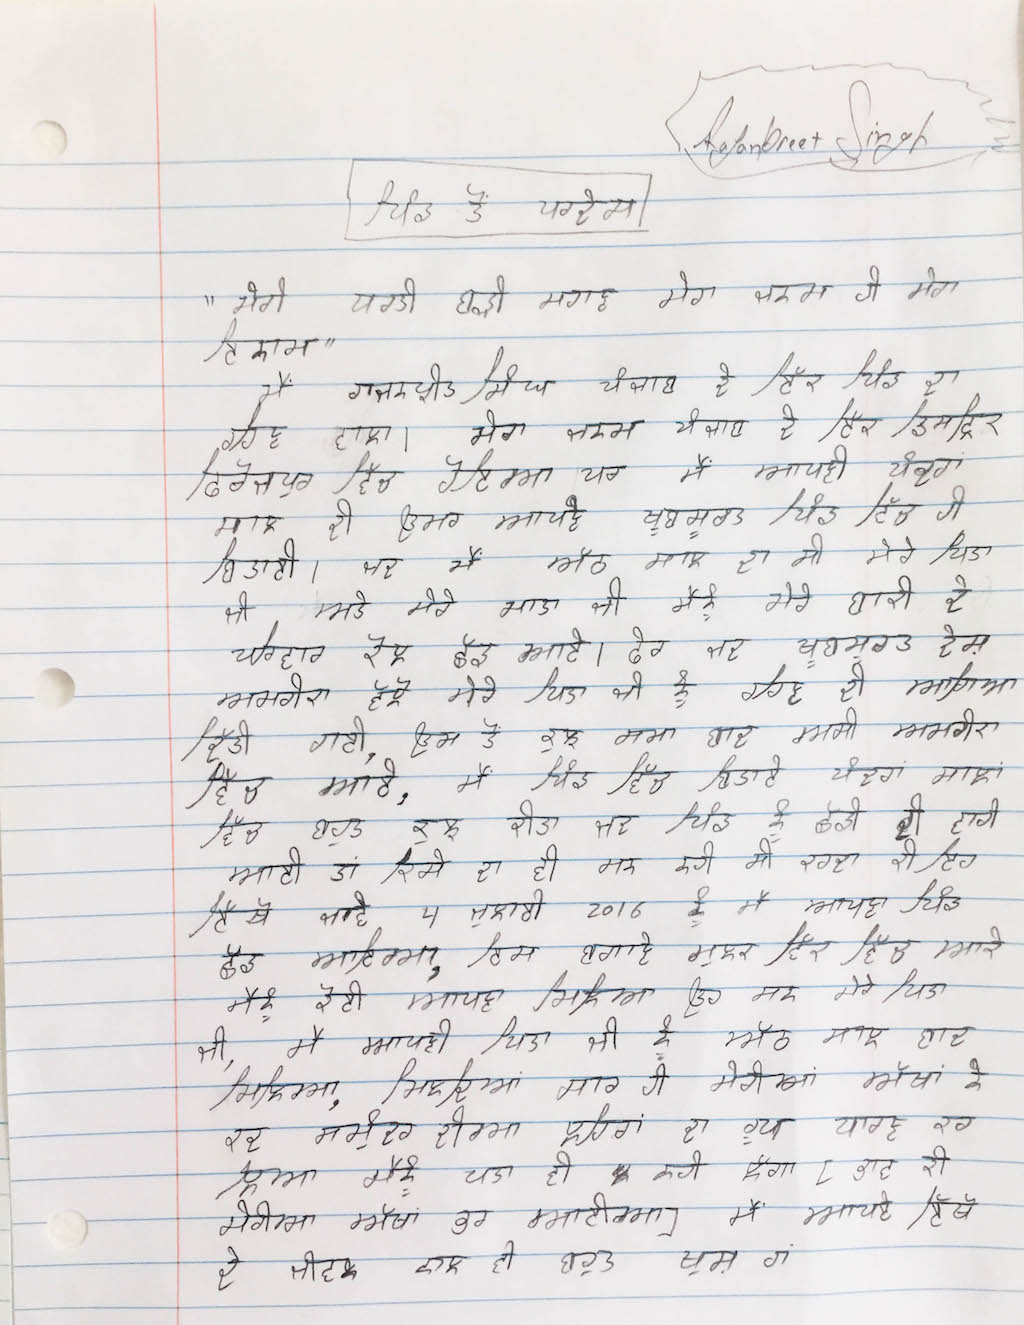 Rajanpreet Singh
ਪਿੰਡ ਤੋਂ ਪਰਦੇਸ
"ਮੇਰੀ ਧਰਤੀ ਬੜੀ ਮਹਾਣ ਮੇਰਾ ਜਨਮ ਹੀ ਮੇਰਾ
ਇਨਾਮ"
ਮੈਂ ਰਾਜਨਪ੍ਰੀਤ ਸਿੰਘ ਪੰਜਾਬ ਦੇ ਇੱਕ ਪਿੰਡ ਦਾ
ਰਹਿਣ ਵਾਲਾ। ਮੇਰਾ ਜਨਮ ਪੰਜਾਬ ਦੇ ਇੱਕ
ਫਿਰੋਜਪੁਰ ਵਿੱਚ ਹੋਇਆ ਪਰ ਮੈਂ ਆਪਣੀ ਪੰਦਰਾਂ
ਸਾਲ ਦੀ ਉਮਰ ਆਪਣੇ ਖੂਬਸੂਰਤ ਪਿੰਡ ਵਿੱਚ ਹੀ
ਬਿਤਾਈ। ਜਦ ਮੈਂ ਅੱਠ ਸਾਲ ਦਾ ਸੀ ਮੇਰੇ ਪਿਤਾ
ਜੀ ਅਤੇ ਮੇਰੇ ਮਾਤਾ ਜੀ ਮੈਂਨੂੰ ਮੇਰੇ ਬਾਕੀ ਦੇ
ਪਰਿਵਾਰ ਕੋਲ ਛੱਡ ਆਏ। ਫੇਰ ਜਦ ਖੂਬਸੂਰਤ ਦੇਸ਼
ਅਮਰੀਕਾ ਵੱਲੋਂ ਮੇਰੇ ਪਿਤਾ ਜੀ ਨੂੰ ਰਹਿਣ ਦੀ ਆਗਿਆ
ਦਿੱਤੀ ਗਈ, ਉਸ ਤੋਂ ਕੁਝ ਸਮਾ ਬਾਦ ਅਸੀ ਅਮਰੀਕਾ
ਵਿੱਚ ਆਏ, ਮੈਂ ਪਿੰਡ ਵਿੱਚ ਬਿਤਾਏ ਪੰਦਰਾਂ ਸਾਲਾਂ
ਵਿੱਚ ਬਹੁਤ ਕੁਝ ਕੀਤਾ ਜਦ ਪਿੰਡ ਨੂੰ ਛੱਡੀ ਦੀ ਵਾਰੀ
ਆਈ ਤਾਂ ਕਿਸੇ ਦਾ ਵੀ ਮਨ ਨਹੀ ਸੀ ਕਰਦਾ ਕੀ ਇਹ
ਇੱਥੋਂ ਜਾਵੇ 4 ਜੁਲਾਈ 2016 ਨੂੰ ਮੈਂ ਆਪਣਾ ਪਿੰਡ
ਛੱਡ ਆਇਆ, ਇਸ ਬਗਾਨੇ ਮੁਲਕ ਵਿੱਚ ਆਕੇ
ਮੈਂਨੂੰ ਕੋਈ ਆਪਣਾ ਮਿਲਿਆ ਉਹ ਸਨ ਮੇਰੇ ਪਿਤਾ
ਜੀ, ਮੈਂ ਆਪਣੀ ਪਿਤਾ ਜੀ ਨੂੰ ਅੱਠ ਸਾਲ ਬਾਦ
ਮਿਲਿਆ, ਮਿਲਦਿਆਂ ਸਾਰ ਹੀ ਮੇਰੀਆਂ ਅੱਖਾਂ ਨੇ
ਕਦ ਸਮੁੰਦਰ ਦੀਆ ਲਹਿਰਾਂ ਦਾ ਰੂਪ ਧਾਰਣ ਕਰ
ਲਿਆ ਮੈਂਨੂੰ ਪਤਾ ਵੀ ਨਹੀ ਲੱਗਾ [ਭਾਵ ਕੀ
ਮੇਰੀਆ ਅੱਖਾਂ ਭਰ ਆਈਆ] ਮੈਂ ਆਪਣੇ ਇੱਥੋਂ
ਦੇ ਜੀਵਨ ਨਾਲ ਵੀ ਬਹੁਤ ਖੁਸ਼ ਹਾਂ